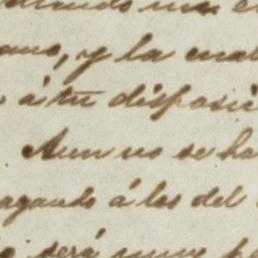 ano, y la cual
á tu disposi
Aun no se ha
agando á los del
será muy